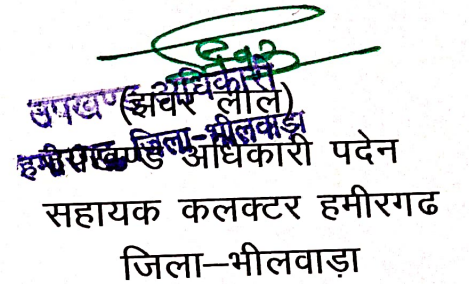 उपखण्ड अधिकारी
हमीरगढ़ जिला-भीलवाड़ा
(झंवर लाल)
उपखण्ड अधिकारी पदेन
सहायक कलक्टर हमीरगढ
जिला–भीलवाड़ा